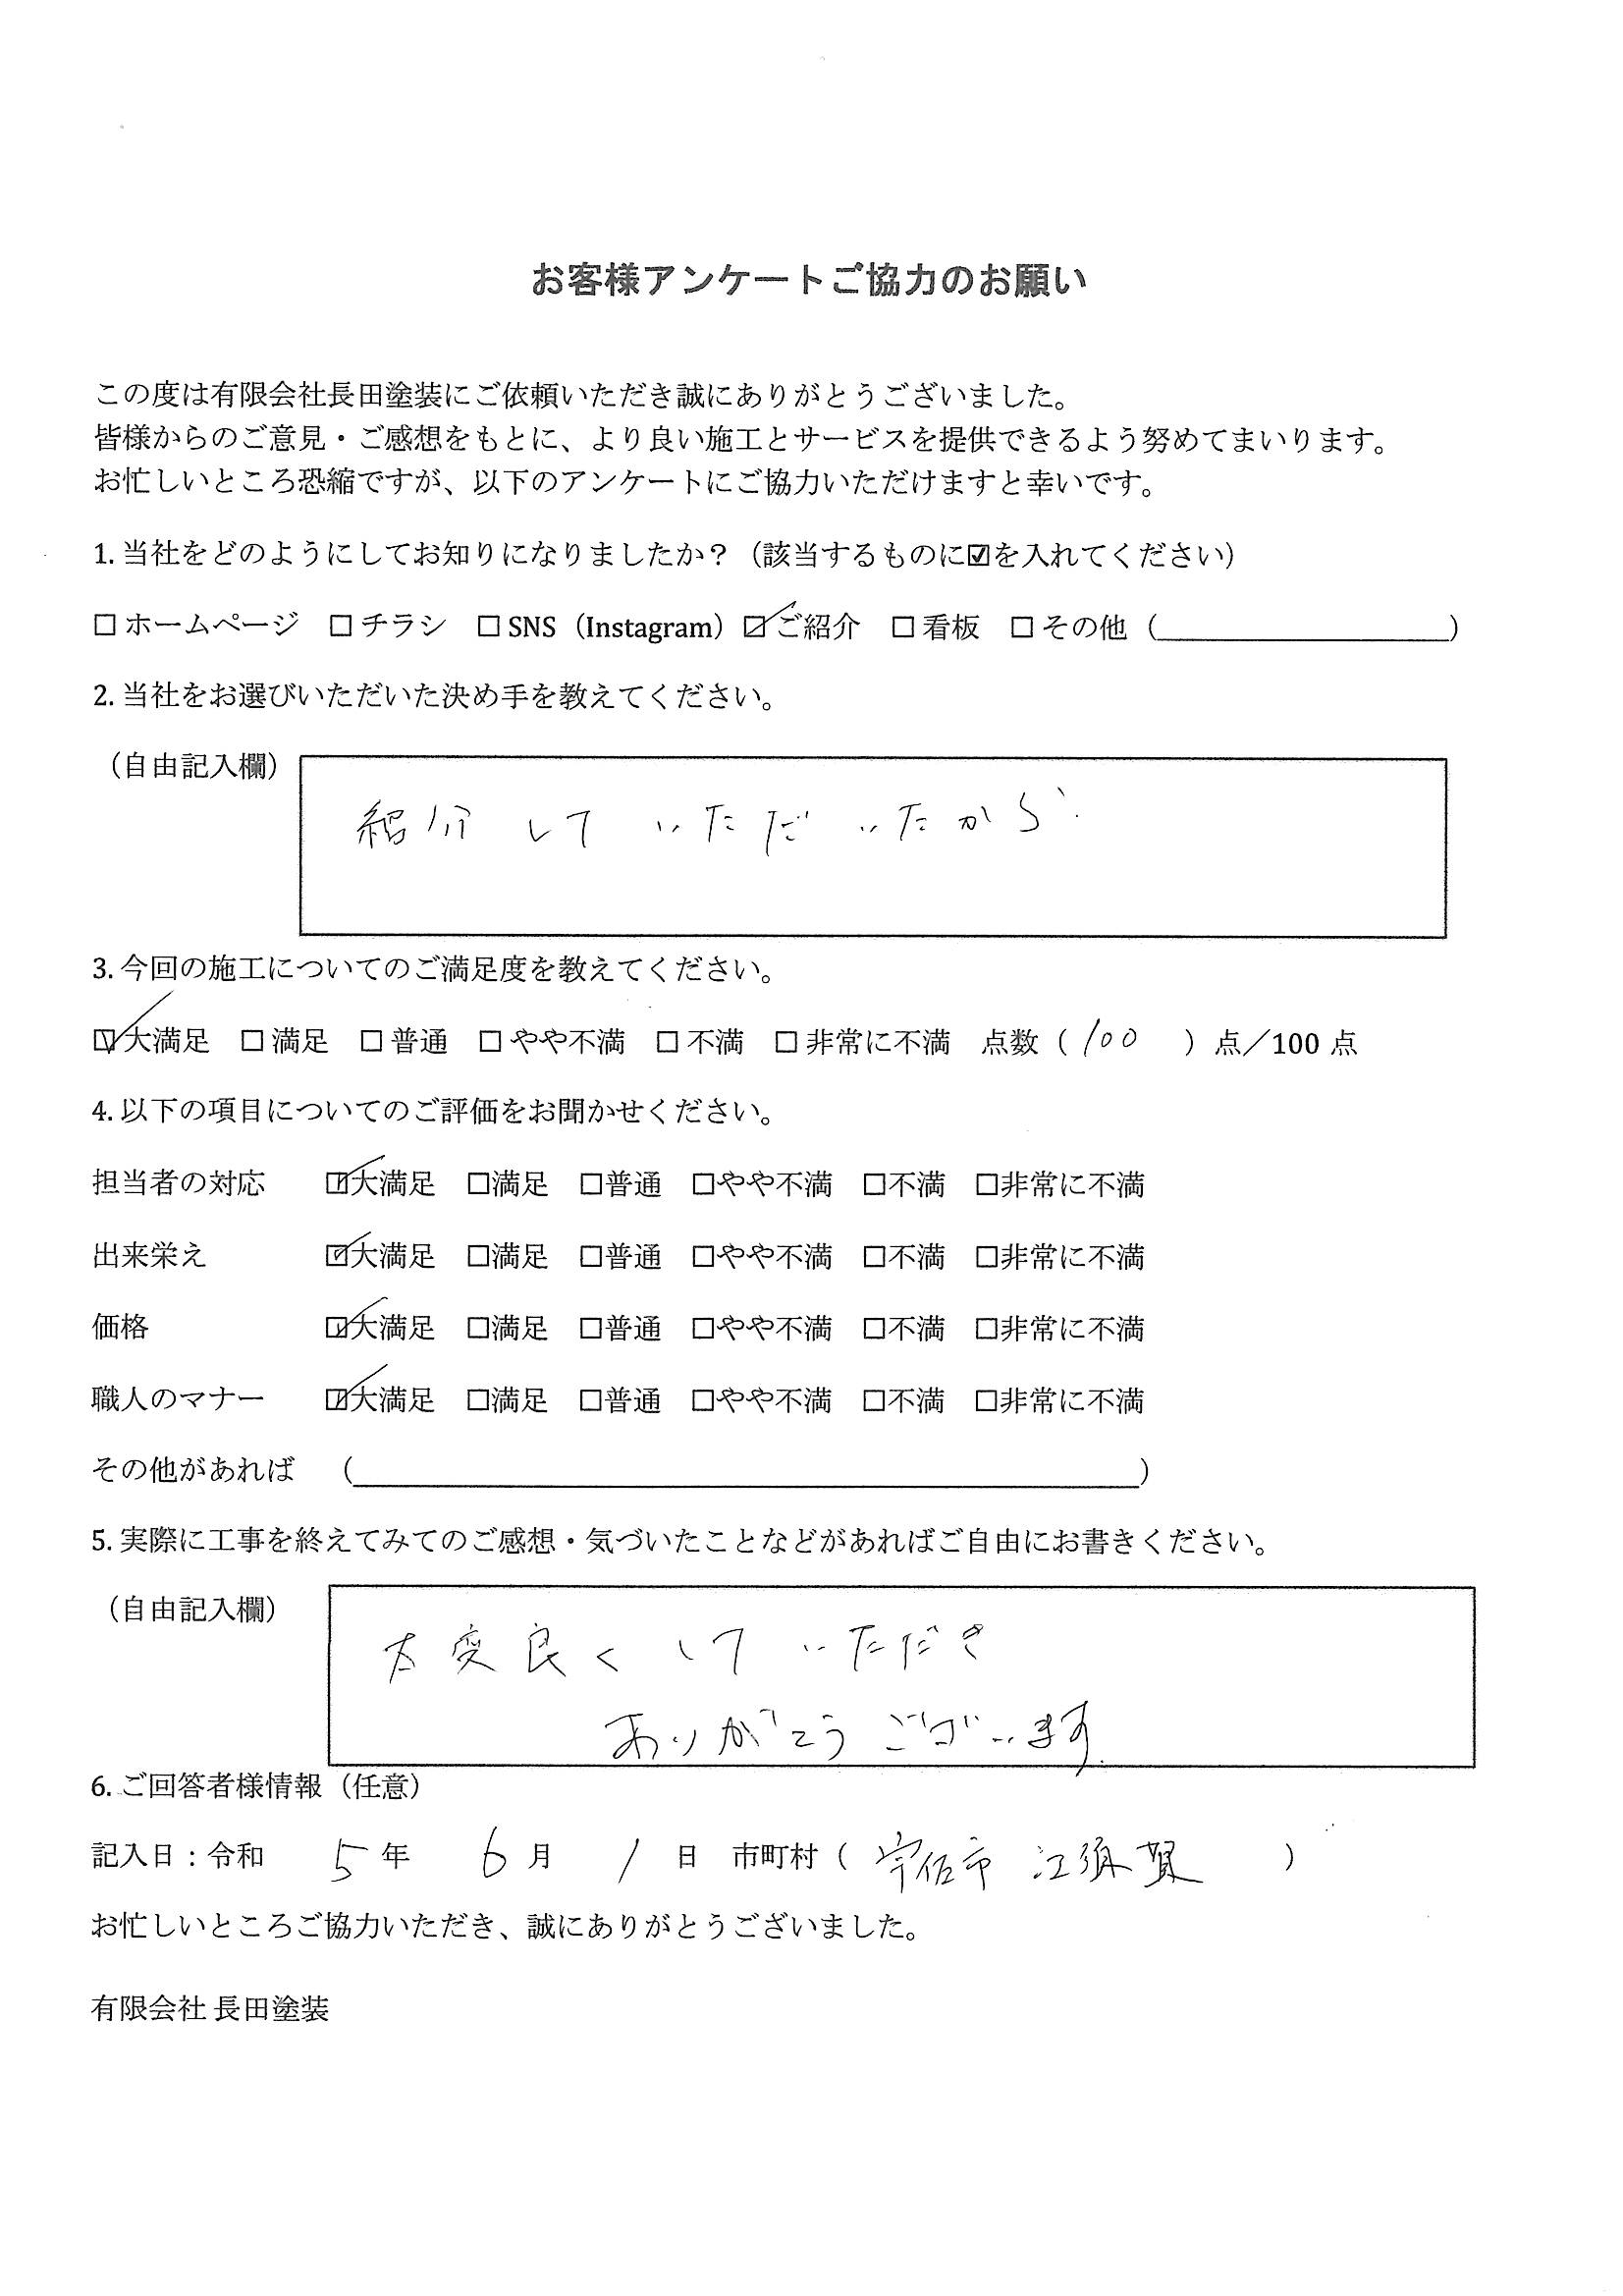 お客様アンケートご協力のお願い
この度は有限会社長田塗装にご依頼いただき誠にありがとうございました。
皆様からのご意見・ご感想をもとに、より良い施工とサービスを提供できるよう努めてまいります。
お忙しいところ恐縮ですが、以下のアンケートにご協力いただけますと幸いです。
1. 当社をどのようにしてお知りになりましたか？（該当するものに☑を入れてください）
☐ ホームページ ☐ チラシ ☐ SNS（Instagram）☑ ご紹介 ☐ 看板 ☐ その他（　　　　）
2. 当社をお選びいただいた決め手を教えてください。
（自由記入欄）
紹介していただいたから
3. 今回の施工についてのご満足度を教えてください。
☑ 大満足 ☐ 満足 ☐ 普通 ☐ やや不満 ☐ 不満 ☐ 非常に不満 点数（ 100 ）点／100 点
4. 以下の項目についてのご評価をお聞かせください。
担当者の対応 ☑大満足 ☐満足 ☐普通 ☐やや不満 ☐不満 ☐非常に不満
出来栄え ☑大満足 ☐満足 ☐普通 ☐やや不満 ☐不満 ☐非常に不満
価格 ☑大満足 ☐満足 ☐普通 ☐やや不満 ☐不満 ☐非常に不満
職人のマナー ☑大満足 ☐満足 ☐普通 ☐やや不満 ☐不満 ☐非常に不満
その他があれば （　　　　）
5. 実際に工事を終えてみてのご感想・気づいたことなどがあればご自由にお書きください。
（自由記入欄）
大変良くしていただき
ありがとうございます.
6. ご回答者様情報（任意）
記入日：令和 5 年 6 月 1 日 市町村（ 宇佐市 江須賀 ）
お忙しいところご協力いただき、誠にありがとうございました。
有限会社 長田塗装